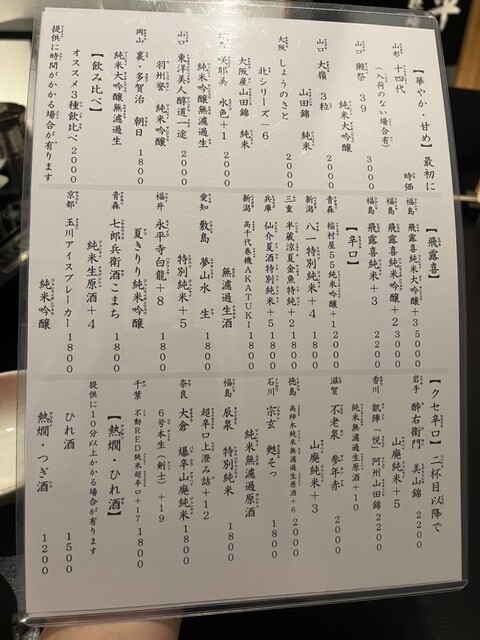 【華やか・甘め】最初に
山形 十四代 時価
(入荷のない場合有)
山口 獺祭 39 3000
純米大吟醸
山口 大嶺 3粒 2000
山田錦 純米
大阪 しょうのさと 2000
北シリーズ-6
大阪産山田錦 純米
咲耶美 水色+1 2000
純米吟醸無濾過生
山口 東洋美人醇道一途 2000
羽州誉 純米吟醸
岡山 裏・多賀治 朝日 1800
純米大吟醸無濾過生
【飲み比べ】
オススメ3種飲比べ 2000
提供に時間がかかる場合が有ります
【飛露喜】
福島 飛露喜純米大吟醸+3 5000
福島 飛露喜純米吟醸+2 3000
福島 飛露喜純米+3 2200
【辛口】
青森 稲村屋55純米吟醸+1 2000
新潟 八一特別純米+4 1800
三重 半蔵涼夏金魚特純+2 1800
兵庫 仙介夏酒特別純米+5 1800
新潟 高千代巻機AKATUKI 1800
無濾過生酒
愛知 敷島 夢山水 生 1800
特別純米+5
福井 永平寺白龍+8 1800
夏きりり純米吟醸
青森 七郎兵衛酒こまち 1800
純米生原酒+4
京都 玉川アイスブレーカー 1800
純米吟醸
【クセ辛口】二杯目以降で
岩手 酔右衛門 美山錦 2200
山廃純米+5
香川 凱陣「悦」阿州山田錦 2200
純米無濾過生原酒+10
滋賀 不老泉 参年赤 2000
山廃純米+3
徳島 高柿木純米無濾過生原酒+6 2000
石川 宗玄 甦そっ 1800
純米無濾過原酒
福島 辰泉 特別純米 1800
超辛口上澄み詰+12
奈良 大倉 爆辛山廃純米 1800
6号本生(剣士)+19
千葉 不動RED純米超辛口+17 1800
【熱燗・ひれ酒】
提供に10分以上かかる場合が有ります
ひれ酒 1500
熱燗・つぎ酒 1200